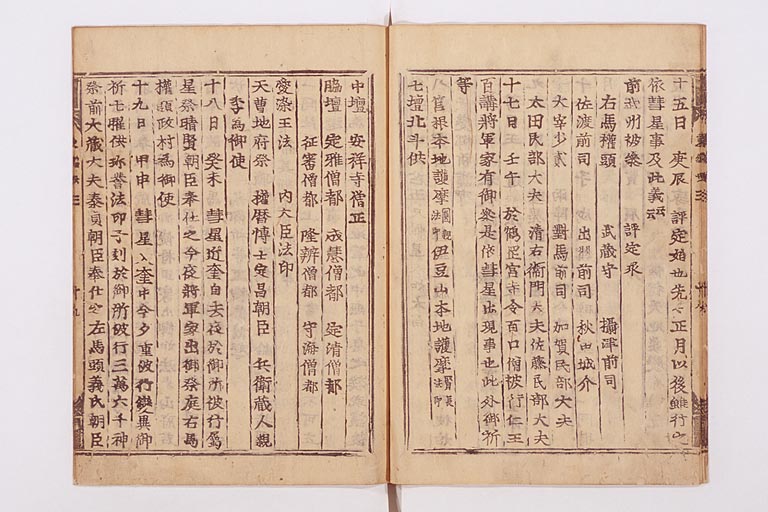 十五日 庚辰 評定始也先々正月以後雖行之
依彗星事及此義云云
前武州被參 評定衆
右馬權頭 武藏守 攝津前司
佐渡前司 出羽前司 秋田城介
太宰少貳 對馬前司 加賀民部大夫
太田民部大夫 清右衞門大夫佐藤民部大夫
十七日 壬午 於鶴罡宮寺令百口僧被行仁王
百講將軍家有御參是依彗星出現事也此外御祈
等
八百躰本地護摩 伊豆山本地護摩
七壇北斗供
中壇 安祥寺僧正
脇壇 定雅僧都 成慧僧都 定清僧都
征審僧都 隆辨僧都 守海僧都
愛染王法 內大臣法印
天曹地府祭 權曆博士定昌朝臣 兵衛藏人親
季爲御使
十八日 癸未 彗星近奎自去夜於御所被行屬
星祭晴賢朝臣奉仕之今夜將軍家出御祭庭右馬
權頭政村爲御使
十九日 甲申 彗星入奎中今夕重被行變異御
祈七曜供珎譽法印子刻於御所被行三萬六千神
祭前大藏大夫泰貞朝臣奉仕之左馬頭義氏朝臣